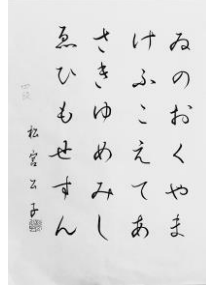 ゐのおくやま
けふこえてあ
さきゆめみし
ゑひもせすん
松宮公子